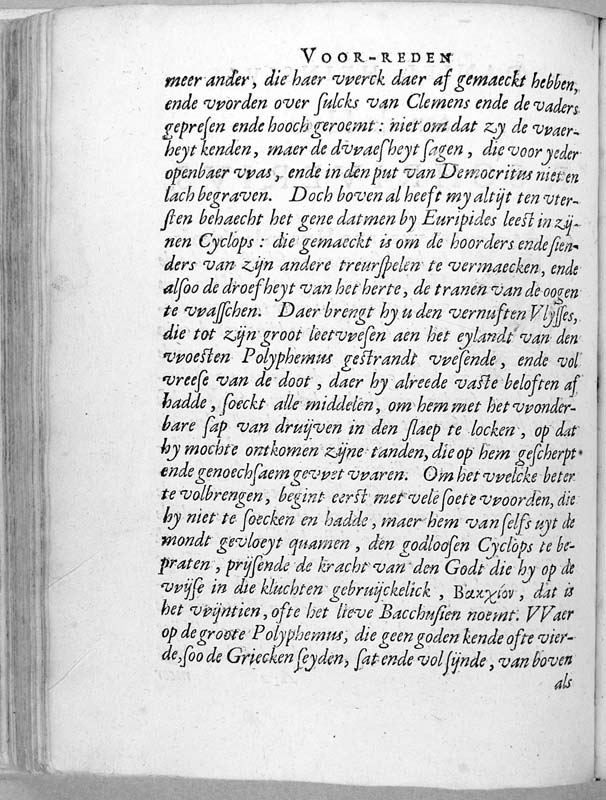 VOOR-REDEN
meer ander, die haer vverck daer af gemaeckt hebben,
ende vvorden over sulcks van Clemens ende de vaders
gepresen ende hooch geroemt: niet om dat zy de vvaer-
heyt kenden, maer de dvvaesheyt sagen, die voor yeder
openbaer vvas, ende in den put van Democritus niet en
lach begraven. Doch boven al heeft my altijt ten uter-
sten behaecht het gene datmen by Euripides leest in zij-
nen Cyclops: die gemaeckt is om de hoorders ende sien-
ders van zijn andere treurspelen te vermaecken, ende
alsoo de droefheyt van het herte, de tranen van de oogen
te vvasschen. Daer brengt hy u den vernuften Vlysses,
die tot zijn groot leetvvesen aen het eylandt van den
vvoesten Polyphemus gestrandt vvesende, ende vol
vreese van de doot, daer hy alreede vaste beloften af
hadde, soeckt alle middelen, om hem met het vvonder-
bare sap van druijven in den slaep te locken, op dat
hy mochte ontkomen zijne tanden, die op hem gescherpt
ende genoechsaem gevvet vvaren. Om het vvelcke beter
te volbrengen, begint eerst met vele soete vvoorden, die
hy niet te soecken en hadde, maer hem van selfs uyt de
mondt gevloeyt quamen, den godloosen Cyclops te be-
praten, prijsende de kracht van den Godt die hy op de
vvijse in die kluchten gebruijckelick, Βακχίον, dat is
het vvijntien, ofte het lieve Bacchusien noemt. VVaer
op de groote Polyphemus, die geen goden kende ofte vier-
de, soo de Griecken seyden, sat ende vol sijnde, van boven
als